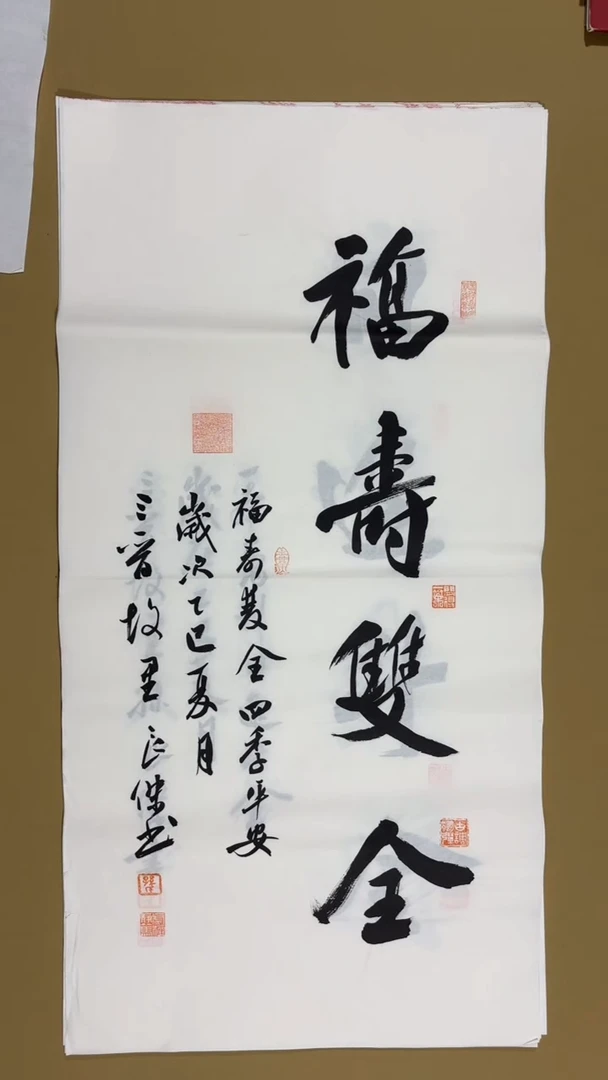 福壽雙全
福寿双全四季平安
歲次乙巳夏月
三晋故里
傑书